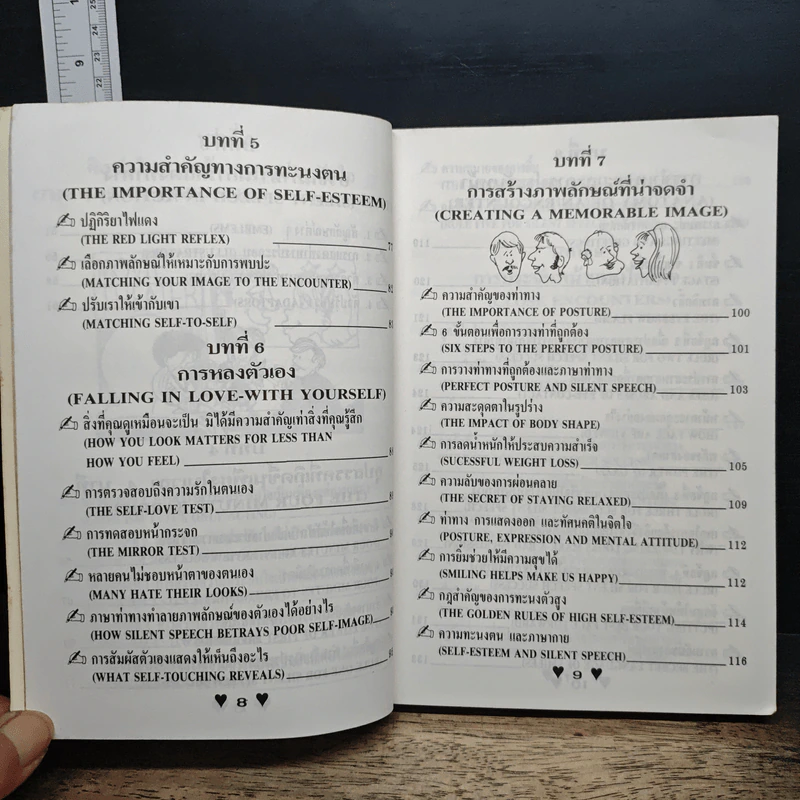 บทที่ 5
ความสำคัญทางการทะนงตน
(THE IMPORTANCE OF SELF-ESTEEM)
ปฏิกิริยาไฟแดง
(THE RED LIGHT REFLEX) 77
เลือกภาพลักษณ์ให้เหมาะกับการพบปะ
(MATCHING YOUR IMAGE TO THE ENCOUNTER)
ปรับเราให้เข้ากับเขา
(MATCHING SELF-TO-SELF)
บทที่ 6
การหลงตัวเอง
(FALLING IN LOVE-WITH YOURSELF)
สิ่งที่คุณดูเหมือนจะเป็น มิได้มีความสำคัญเท่าสิ่งที่คุณรู้สึก
(HOW YOU LOOK MATTERS FOR LESS THAN
HOW YOU FEEL)
การตรวจสอบถึงความรักในตนเอง
(THE SELF-LOVE TEST)
การทดสอบหน้ากระจก
(THE MIRROR TEST)
หลายคนไม่ชอบหน้าตาของตนเอง
(MANY HATE THEIR LOOKS)
ภาษาท่าทางทำลายภาพลักษณ์ของตัวเองได้อย่างไร
(HOW SILENT SPEECH BETRAYS POOR SELF-IMAGE)
การสัมผัสตัวเองแสดงให้เห็นถึงอะไร
(WHAT SELF-TOUCHING REVEALS)
♥ 8 ♥
บทที่ 7
การสร้างภาพลักษณ์ที่น่าจดจำ
(CREATING A MEMORABLE IMAGE)
ความสำคัญของท่าทาง
(THE IMPORTANCE OF POSTURE) 100
6 ขั้นตอนเพื่อการวางท่าที่ถูกต้อง
(SIX STEPS TO THE PERFECT POSTURE) 101
การวางท่าทางที่ถูกต้องและภาษาท่าทาง
(PERFECT POSTURE AND SILENT SPEECH) 103
ความสะดุดตาในรูปร่าง
(THE IMPACT OF BODY SHAPE)
การลดน้ำหนักให้ประสบความสำเร็จ
(SUCESSFUL WEIGHT LOSS) 105
ความลับของการผ่อนคลาย
(THE SECRET OF STAYING RELAXED) 109
ท่าทาง การแสดงออก และทัศนคติในจิตใจ
(POSTURE, EXPRESSION AND MENTAL ATTITUDE) 112
การยิ้มช่วยให้มีความสุขได้
(SMILING HELPS MAKE US HAPPY) 112
กฎสำคัญของการทะนงตัวสูง
(THE GOLDEN RULES OF HIGH SELF-ESTEEM) 114
ความทะนงตน และภาษากาย
(SELF-ESTEEM AND SILENT SPEECH) 116
♥ 9 ♥